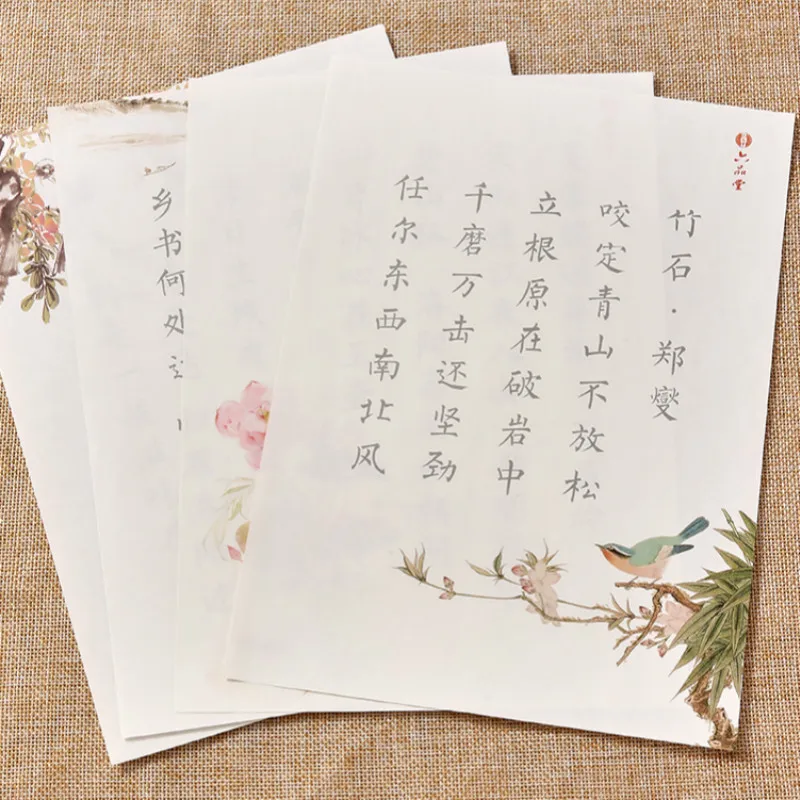 六品堂
竹石·郑燮
咬定青山不放松
立根原在破岩中
千磨万击还坚劲
任尔东西南北风
乡书何处